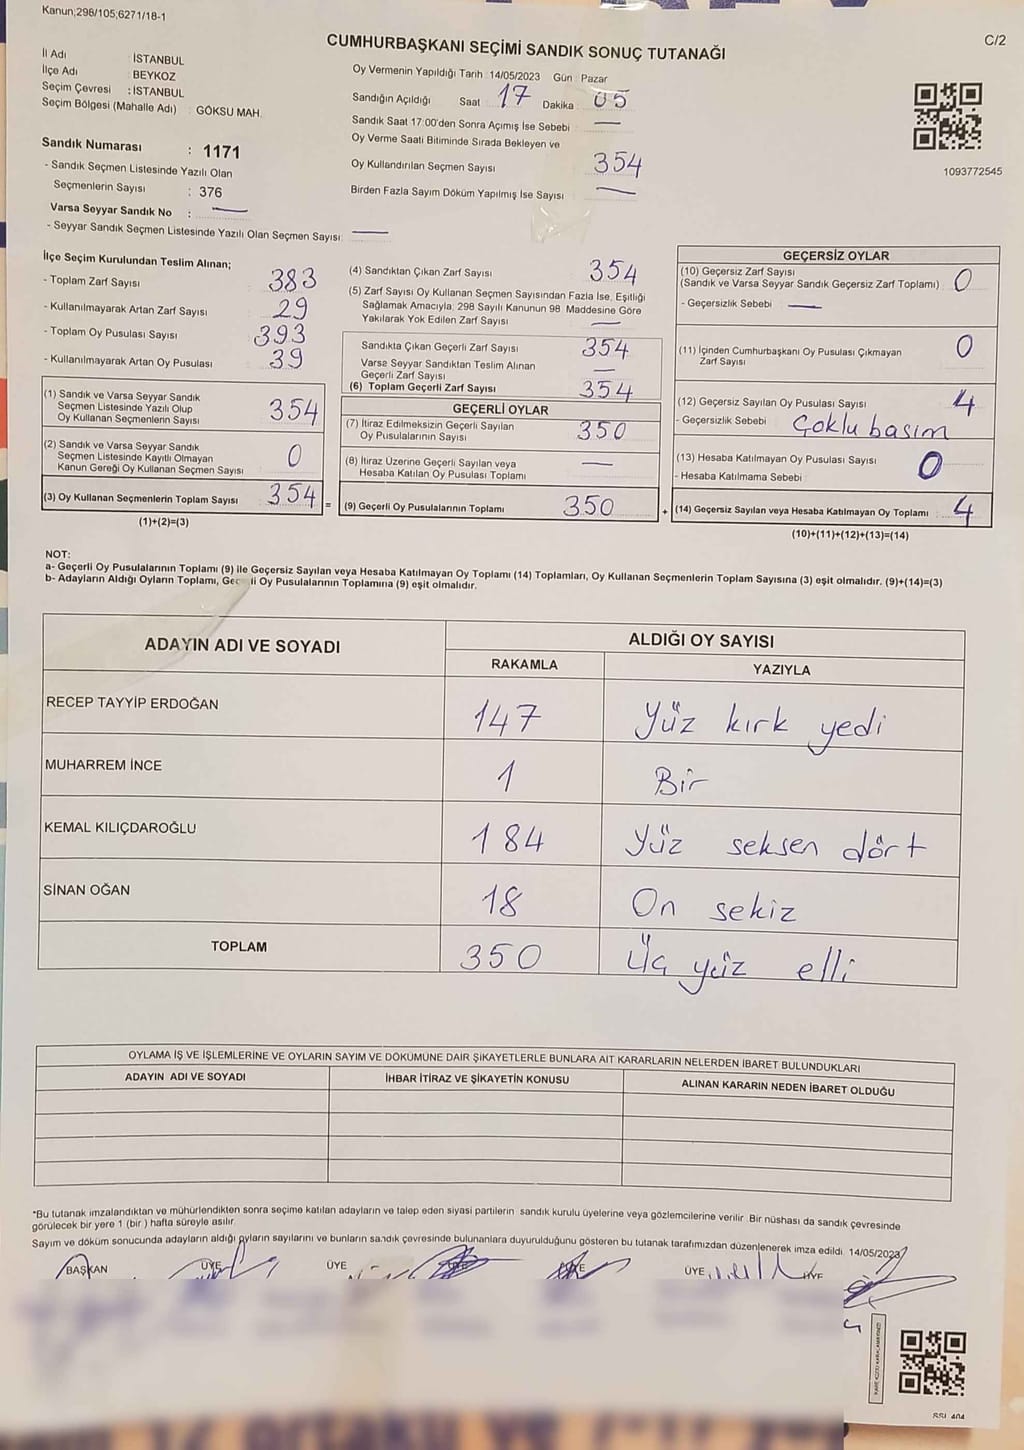 Kanun;298/105;6271/18-1
C/2
CUMHURBAŞKANI SEÇİMİ SANDIK SONUÇ TUTANAĞI
İl Adı : İSTANBUL
İlçe Adı : BEYKOZ
Seçim Çevresi : İSTANBUL
Seçim Bölgesi (Mahalle Adı) : GÖKSU MAH.
Sandık Numarası : 1171
- Sandık Seçmen Listesinde Yazılı Olan
Seçmenlerin Sayısı : 376
Varsa Seyyar Sandık No : —
- Seyyar Sandık Seçmen Listesinde Yazılı Olan Seçmen Sayısı: —
Oy Vermenin Yapıldığı Tarih : 14/05/2023 Gün : Pazar
Sandığın Açıldığı Saat 17 Dakika : 05
Sandık Saat 17:00'den Sonra Açımış İse Sebebi : —
Oy Verme Saati Bitiminde Sırada Bekleyen ve
Oy Kullandırılan Seçmen Sayısı 354
Birden Fazla Sayım Döküm Yapılmış İse Sayısı : —
1093772545
İlçe Seçim Kurulundan Teslim Alınan;
- Toplam Zarf Sayısı 383
- Kullanılmayarak Artan Zarf Sayısı 29
- Toplam Oy Pusulası Sayısı 393
- Kullanılmayarak Artan Oy Pusulası 39
(1) Sandık ve Varsa Seyyar Sandık
Seçmen Listesinde Yazılı Olup
Oy Kullanan Seçmenlerin Sayısı 354
(2) Sandık ve Varsa Seyyar Sandık
Seçmen Listesinde Kayıtlı Olmayan
Kanun Gereği Oy Kullanan Seçmen Sayısı 0
(3) Oy Kullanan Seçmenlerin Toplam Sayısı 354 =
(1)+(2)=(3)
(4) Sandıktan Çıkan Zarf Sayısı 354
(5) Zarf Sayısı Oy Kullanan Seçmen Sayısından Fazla İse, Eşitliği
Sağlamak Amacıyla; 298 Sayılı Kanunun 98. Maddesine Göre
Yakılarak Yok Edilen Zarf Sayısı —
Sandıkta Çıkan Geçerli Zarf Sayısı 354
Varsa Seyyar Sandıktan Teslim Alınan
Geçerli Zarf Sayısı —
(6) Toplam Geçerli Zarf Sayısı 354
GEÇERLİ OYLAR
(7) İtiraz Edilmeksizin Geçerli Sayılan
Oy Pusulalarının Sayısı 350
(8) İtiraz Üzerine Geçerli Sayılan veya
Hesaba Katılan Oy Pusulası Toplamı —
(9) Geçerli Oy Pusulalarının Toplamı 350 +
GEÇERSİZ OYLAR
(10) Geçersiz Zarf Sayısı
(Sandık ve Varsa Seyyar Sandık Geçersiz Zarf Toplamı) 0
- Geçersizlik Sebebi : —
(11) İçinden Cumhurbaşkanı Oy Pusulası Çıkmayan
Zarf Sayısı 0
(12) Geçersiz Sayılan Oy Pusulası Sayısı 4
- Geçersizlik Sebebi : Çoklu basım
(13) Hesaba Katılmayan Oy Pusulası Sayısı 0
- Hesaba Katılmama Sebebi :
(14) Geçersiz Sayılan veya Hesaba Katılmayan Oy Toplamı 4
(10)+(11)+(12)+(13)=(14)
NOT:
a- Geçerli Oy Pusulalarının Toplamı (9) ile Geçersiz Sayılan veya Hesaba Katılmayan Oy Toplamı (14) Toplamları, Oy Kullanan Seçmenlerin Toplam Sayısına (3) eşit olmalıdır. (9)+(14)=(3)
b- Adayların Aldığı Oyların Toplamı, Geçerli Oy Pusulalarının Toplamına (9) eşit olmalıdır.
ADAYIN ADI VE SOYADI ALDIĞI OY SAYISI
RAKAMLA YAZIYLA
RECEP TAYYİP ERDOĞAN 147 Yüz kırk yedi
MUHARREM İNCE 1 Bir
KEMAL KILIÇDAROĞLU 184 Yüz seksen dört
SİNAN OĞAN 18 On sekiz
TOPLAM 350 Üç yüz elli
OYLAMA İŞ VE İŞLEMLERİNE VE OYLARIN SAYIM VE DÖKÜMÜNE DAİR ŞİKAYETLERLE BUNLARA AİT KARARLARIN NELERDEN İBARET BULUNDUKLARI
ADAYIN ADI VE SOYADI İHBAR İTİRAZ VE ŞİKAYETİN KONUSU ALINAN KARARIN NEDEN İBARET OLDUĞU
*Bu tutanak imzalandıktan ve mühürlendikten sonra seçime katılan adayların ve talep eden siyasi partilerin sandık kurulu üyelerine veya gözlemcilerine verilir. Bir nüshası da sandık çevresinde
görülecek bir yere 1 (bir ) hafta süreyle asılır.
Sayım ve döküm sonucunda adayların aldığı oyların sayılarını ve bunların sandık çevresinde bulunanlara duyurulduğunu gösteren bu tutanak tarafımızdan düzenlenerek imza edildi. 14/05/2023
BAŞKAN ÜYE ÜYE ÜYE ÜYE ÜYE ÜYE